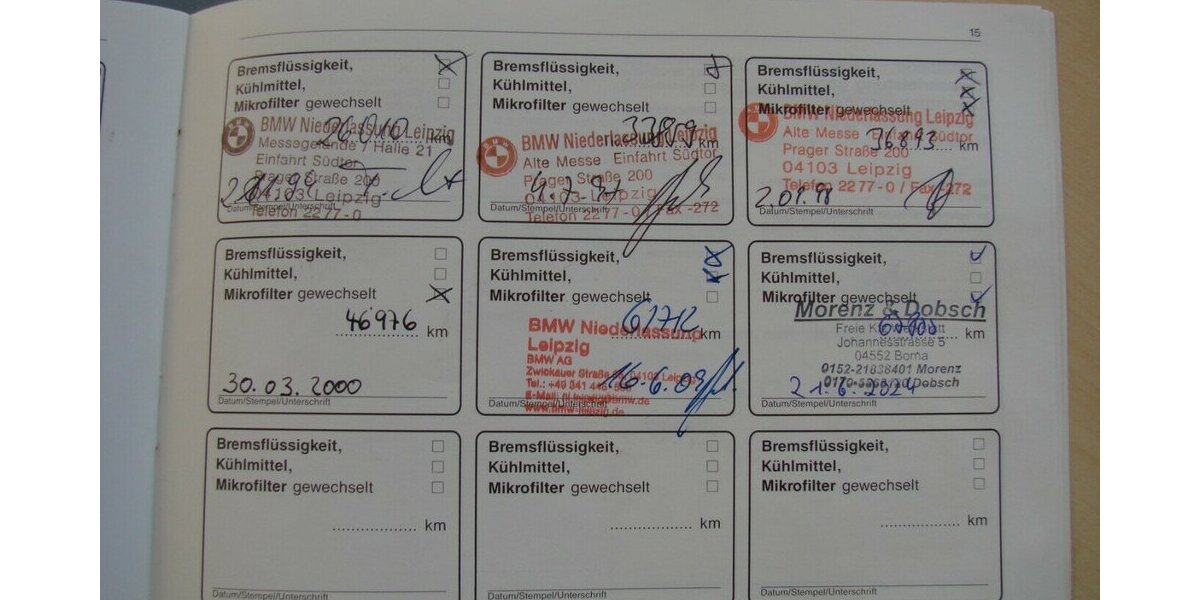 15
Bremsflüssigkeit,
Kühlmittel,
Mikrofilter gewechselt
BMW Niederlassung Leipzig
km
Messegelände / Halle 21
Einfahrt Südtor
Prager Straße 200
04103 Leipzig
Telefon 2277-0
Datum/Stempel/Unterschrift
Bremsflüssigkeit,
Kühlmittel,
Mikrofilter gewechselt
BMW Niederlassung Leipzig
km
Alte Messe Einfahrt Südtor
Prager Straße 200
04103 Leipzig
4.7.97
Telefon 2277-0 / Fax -272
Datum/Stempel/Unterschrift
Bremsflüssigkeit,
Kühlmittel,
Mikrofilter gewechselt
BMW Niederlassung Leipzig
Alte Messe Einfahrt Südtor
36893 km
Prager Straße 200
04103 Leipzig
Telefon 2277-0 / Fax -272
Datum/Stempel/Unterschrift
Bremsflüssigkeit,
Kühlmittel,
Mikrofilter gewechselt
46976 km
30.03.2000
Datum/Stempel/Unterschrift
Bremsflüssigkeit,
Kühlmittel,
Mikrofilter gewechselt
km
BMW Niederlassung
Leipzig
BMW AG
Zwickauer Straße 04103 Leipzig
Tel.: +49 341
16.6.09
www.bmw-leipzig.de
Datum/Stempel/Unterschrift
Bremsflüssigkeit,
Kühlmittel,
Mikrofilter gewechselt
Morenz & Dobsch
km
Johannesstrasse 5
04552 Borna
0152-21838401 Morenz
Dobsch
21.6.2024
Datum/Stempel/Unterschrift
Bremsflüssigkeit,
Kühlmittel,
Mikrofilter gewechselt
km
Datum/Stempel/Unterschrift
Bremsflüssigkeit,
Kühlmittel,
Mikrofilter gewechselt
km
Datum/Stempel/Unterschrift
Bremsflüssigkeit,
Kühlmittel,
Mikrofilter gewechselt
km
Datum/Stempel/Unterschrift